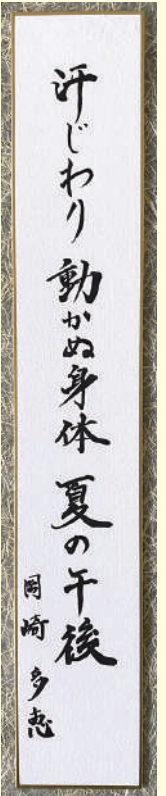 汗じわり動かぬ身体夏の午後
岡崎多恵